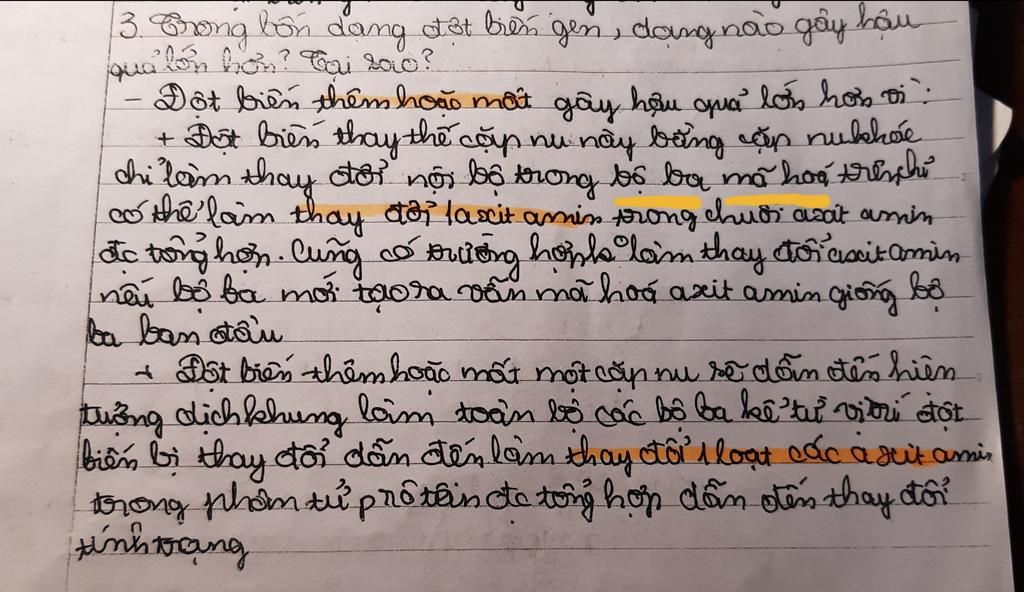 3. Trong bốn dạng đột biến gen, dạng nào gây hậu
quả lớn hơn? Tại sao?
- Đột biến thêm hoặc mất gây hậu quả lớn hơn vì:
+ Đột biến thay thế cặp nu này bằng cặp nu khác
chỉ làm thay đổi nội bộ trong bộ ba mã hoá trên, chỉ
có thể làm thay đổi 1 axit amin trong chuỗi axit amin
đc tổng hợp. Cũng có trường hợp k° làm thay đổi axit amin
nếu bộ ba mới tạo ra vẫn mã hoá axit amin giống bộ
ba ban đầu
+ Đột biến thêm hoặc mất một cặp nu sẽ dẫn đến hiện
tượng dịch khung làm toàn bộ các bộ ba kể từ vị trí đột
biến bị thay đổi dẫn đến làm thay đổi 1 loạt các axit amin
trong phâm tử prôtêin đc tổng hợp dẫn đến thay đổi
tính trạng